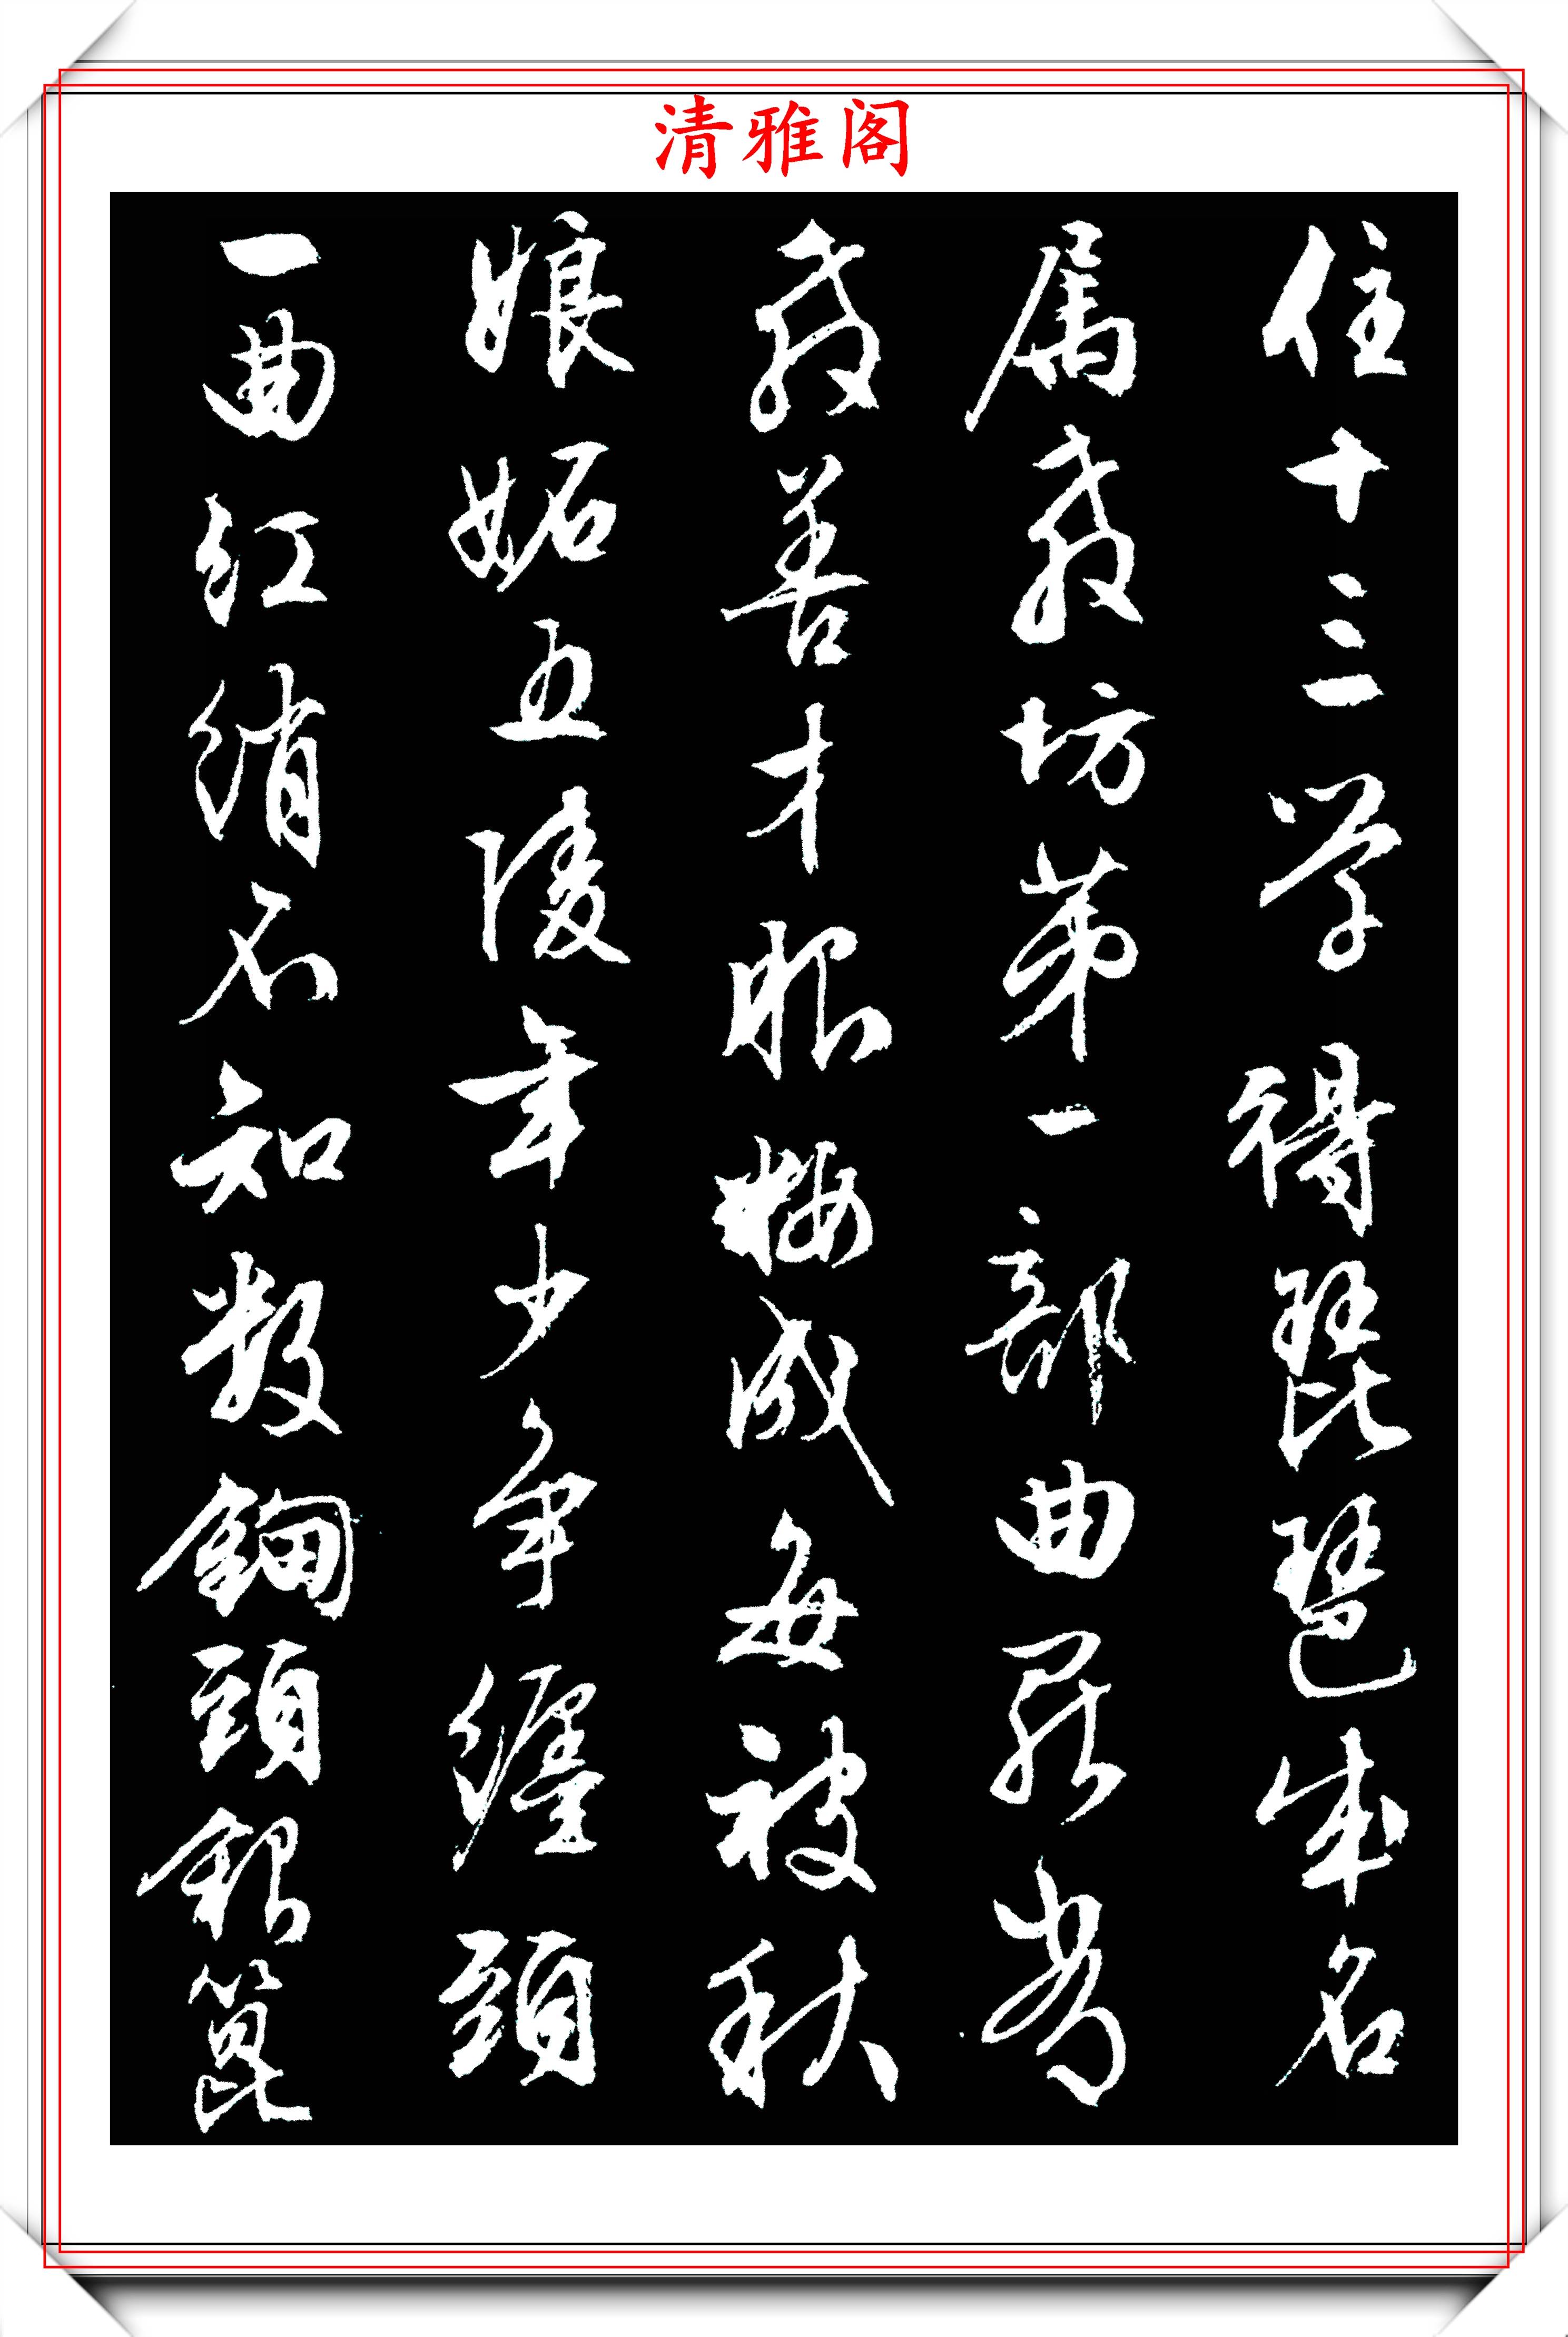 清雅阁
住十三学得琵琶成名
属教坊第一部曲罷曾
教善才服粧成每被秋
娘妬五陵年少争纏頭
一曲紅綃不知数鈿頭銀篦